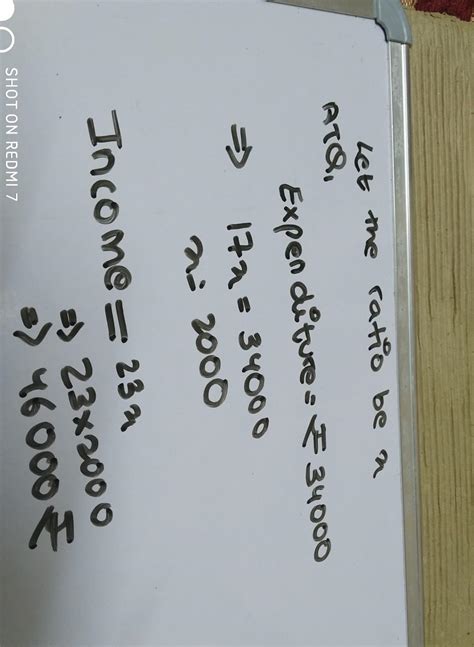 Let the ratio be x
ATQ,
Expenditure = ₹ 34000
⇒ 17x = 34000
x = 2000
Income = 23x
⇒ 23×2000
⇒ 46000₹
SHOT ON REDMI 7